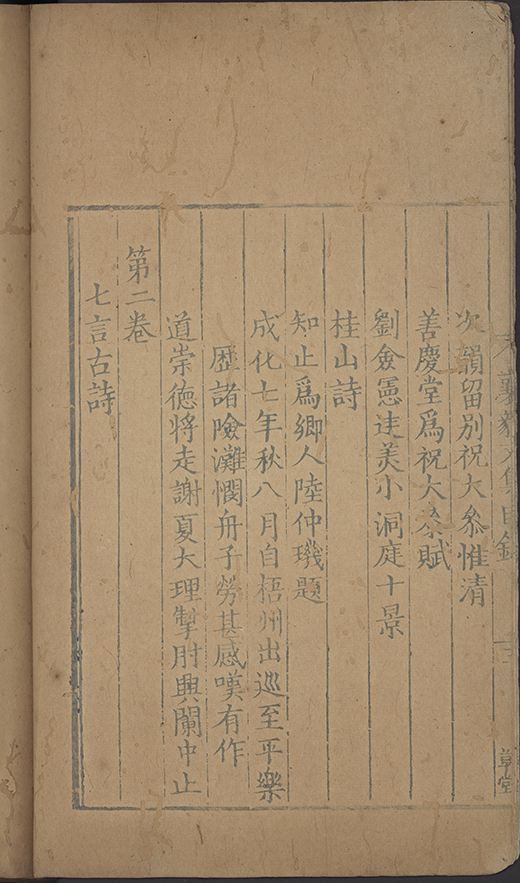 襄毅文集目錄
草堂
次韻留別祝大叅惟清
善慶堂爲祝大叅賦
劉僉憲廷美小洞庭十景
桂山詩
知止爲鄉人陸仲璣題
成化七年秋八月自梧州出巡至平樂
歷諸險灘憫舟子勞甚感嘆有作
道崇德將走謝夏大理掣肘興闌中止
第二卷
七言古詩